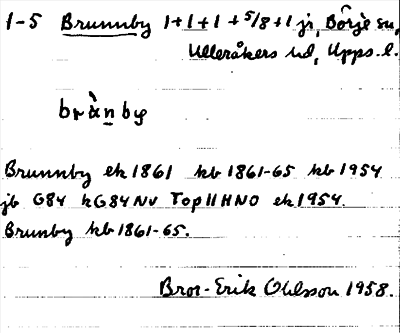 1-5 Brunnby 1+1+1+5/8+1 jr, Börje sn,
Ulleråkers hd, Upps. l.
brànby
Brunnby ek 1861 kb 1861-65 kb 1954
jb G84 kG84NV Top11HNO ek 1954.
Brunby kb 1861-65.
Bror-Erik Ohlsson 1958.